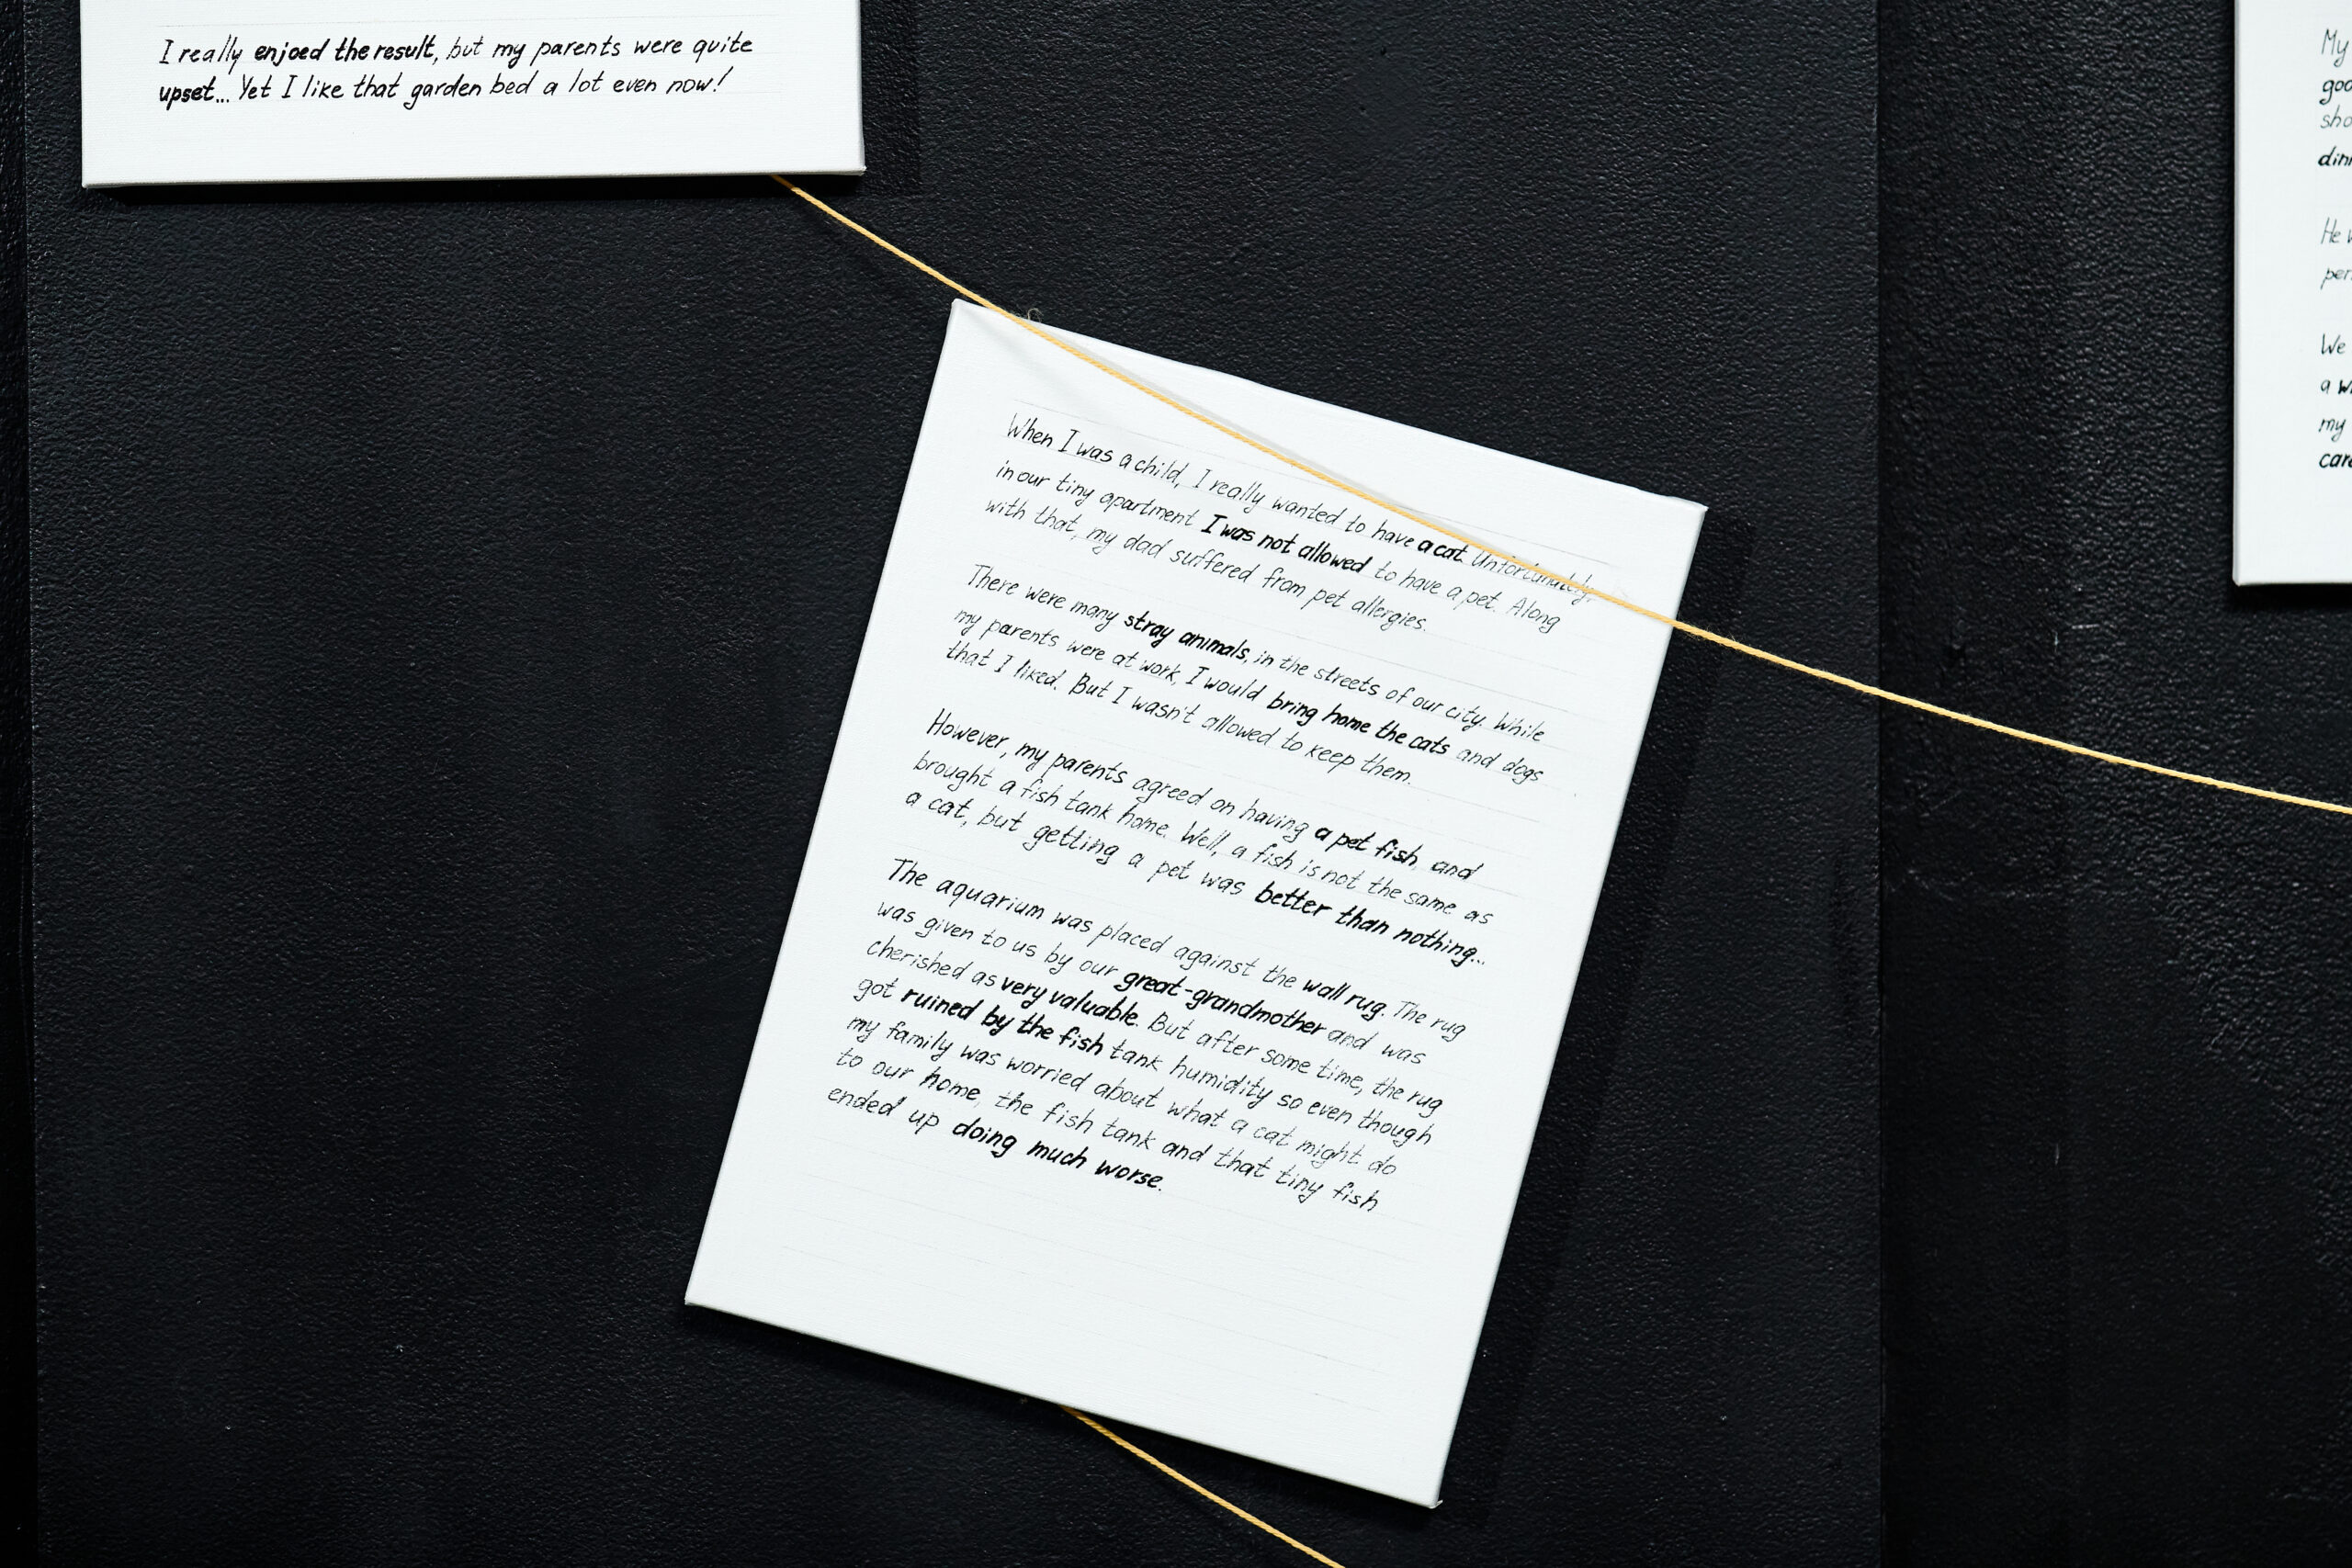 I really enjoed the result, but my parents were quite
upset... Yet I like that garden bed a lot even now!
When I was a child, I really wanted to have a cat. Unfortunately,
in our tiny apartment I was not allowed to have a pet. Along
with that, my dad suffered from pet allergies.
There were many stray animals, in the streets of our city. While
my parents were at work, I would bring home the cats and dogs
that I liked. But I wasn't allowed to keep them.
However, my parents agreed on having a pet fish, and
brought a fish tank home. Well, a fish is not the same as
a cat, but getting a pet was better than nothing...
The aquarium was placed against the wall rug. The rug
was given to us by our great-grandmother and was
cherished as very valuable. But after some time, the rug
got ruined by the fish tank humidity so even though
my family was worried about what a cat might do
to our home, the fish tank and that tiny fish
ended up doing much worse.
My
He
We
a
my